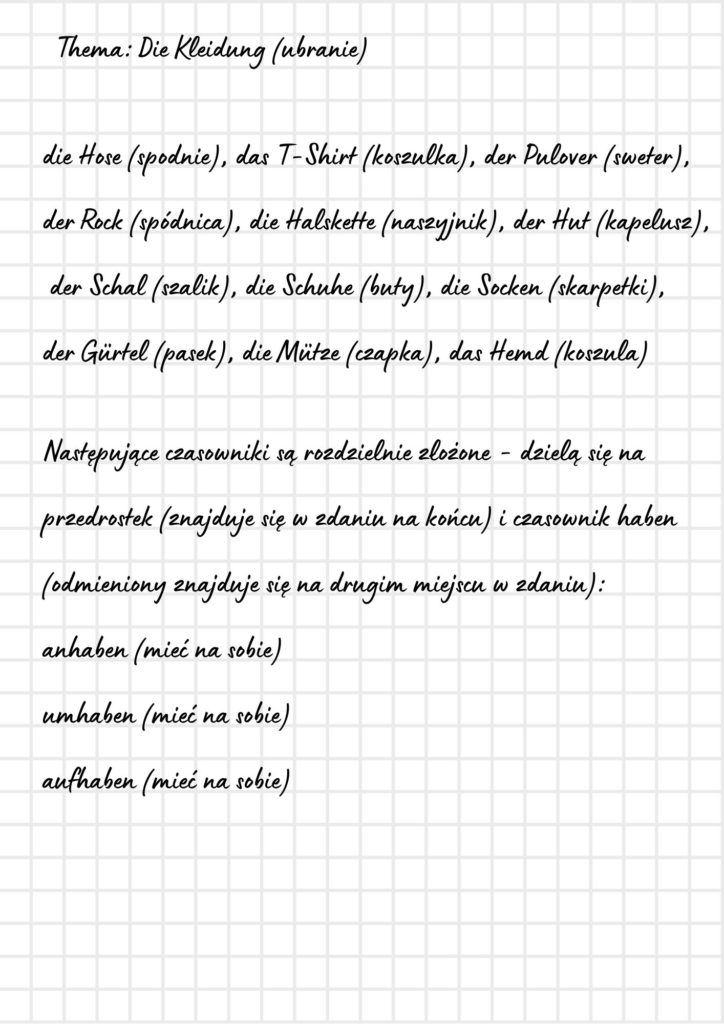 Thema: Die Kleidung (ubranie)
die Hose (spodnie), das T-Shirt (koszulka), der Pulover (sweter),
der Rock (spódnica), die Halskette (naszyjnik), der Hut (kapelusz),
der Schal (szalik), die Schuhe (buty), die Socken (skarpetki),
der Gürtel (pasek), die Mütze (czapka), das Hemd (koszula)
Następujące czasowniki są rozdzielnie złożone - dzielą się na
przedrostek (znajduje się w zdaniu na końcu) i czasownik haben
(odmieniony znajduje się na drugim miejscu w zdaniu):
anhaben (mieć na sobie)
umhaben (mieć na sobie)
aufhaben (mieć na sobie)